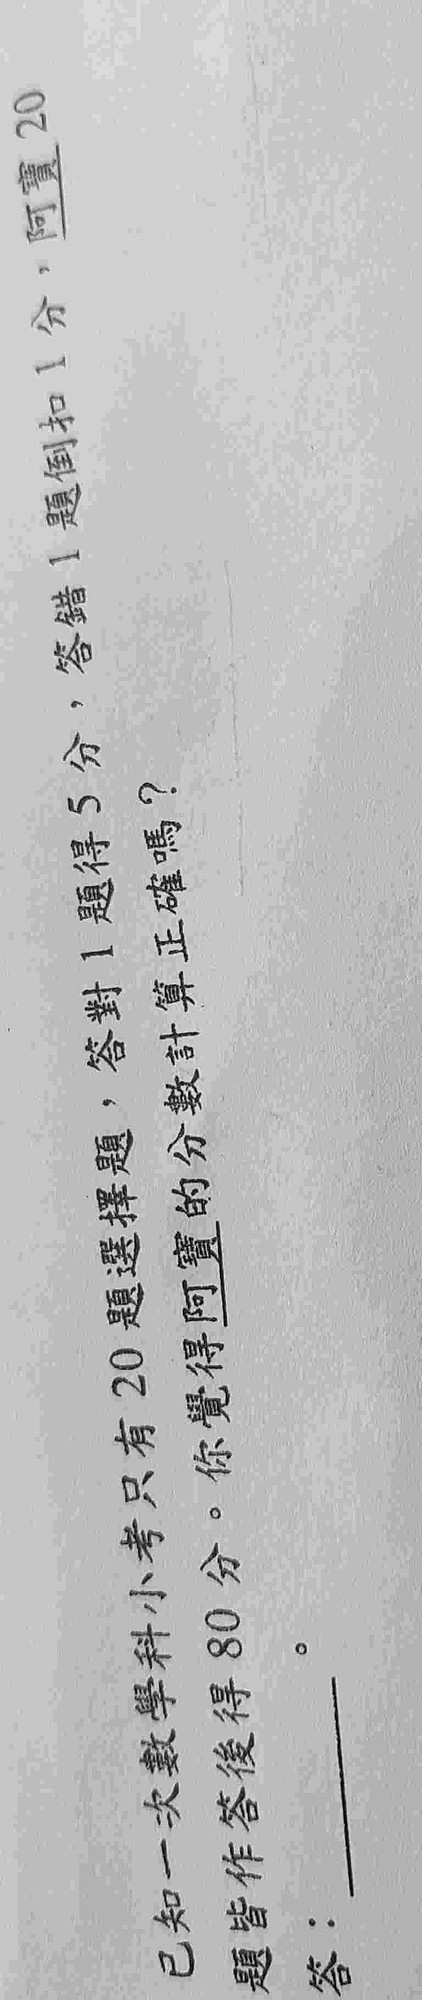 已知一次數學科小考只有 20 題選擇題，答對 1 題得 5 分，答錯 1 題倒扣 1 分，阿寶 20
題皆作答後得 80 分。你覺得阿寶的分數計算正確嗎？
答：＿＿＿＿＿。